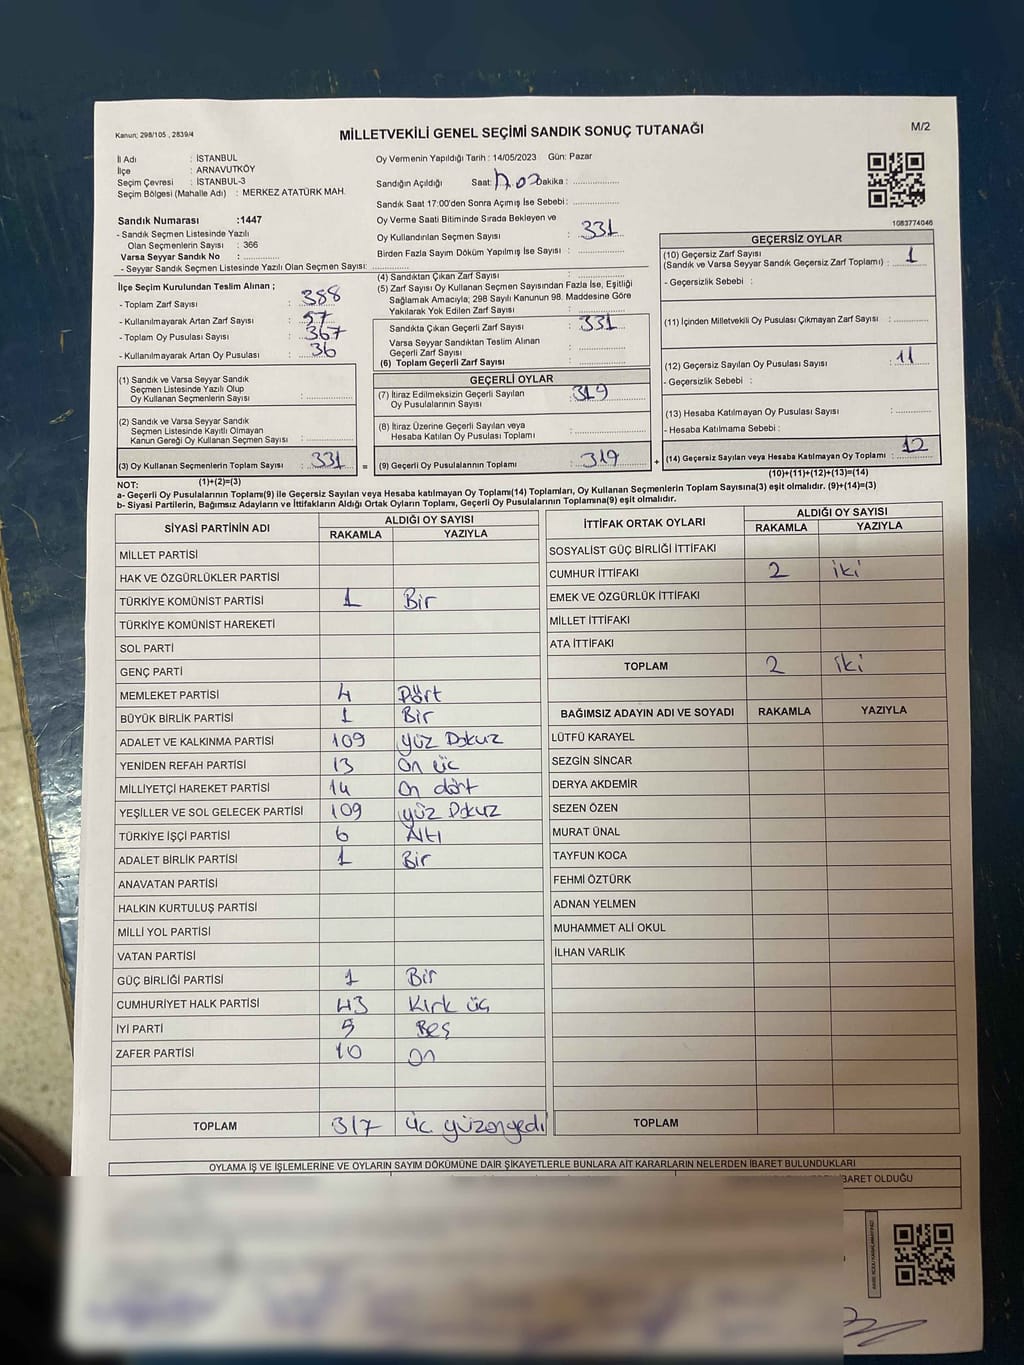 Kanun; 298/105 , 2839/4
MİLLETVEKİLİ GENEL SEÇİMİ SANDIK SONUÇ TUTANAĞI
M/2
İl Adı : İSTANBUL
İlçe : ARNAVUTKÖY
Seçim Çevresi : İSTANBUL-3
Seçim Bölgesi (Mahalle Adı) : MERKEZ ATATÜRK MAH.
Sandık Numarası :1447
- Sandık Seçmen Listesinde Yazılı
Olan Seçmenlerin Sayısı : 366
Varsa Seyyar Sandık No : ..............
- Seyyar Sandık Seçmen Listesinde Yazılı Olan Seçmen Sayısı: ..............
İlçe Seçim Kurulundan Teslim Alınan ;
- Toplam Zarf Sayısı : 388
- Kullanılmayarak Artan Zarf Sayısı : 57
- Toplam Oy Pusulası Sayısı : 367
- Kullanılmayarak Artan Oy Pusulası : 36
(1) Sandık ve Varsa Seyyar Sandık
Seçmen Listesinde Yazılı Olup
Oy Kullanan Seçmenlerin Sayısı : ..............
(2) Sandık ve Varsa Seyyar Sandık
Seçmen Listesinde Kayıtlı Olmayan
Kanun Gereği Oy Kullanan Seçmen Sayısı : ..............
(3) Oy Kullanan Seçmenlerin Toplam Sayısı : 331 =
(1)+(2)=(3)
Oy Vermenin Yapıldığı Tarih : 14/05/2023 Gün: Pazar
Sandığın Açıldığı Saat: 17.02 Dakika : ..............
Sandık Saat 17:00'den Sonra Açılmış İse Sebebi: ..............
Oy Verme Saati Bitiminde Sırada Bekleyen ve
Oy Kullandırılan Seçmen Sayısı : 331
Birden Fazla Sayım Döküm Yapılmış İse Sayısı : ..............
(4) Sandıktan Çıkan Zarf Sayısı : ..............
(5) Zarf Sayısı Oy Kullanan Seçmen Sayısından Fazla İse, Eşitliği
Sağlamak Amacıyla; 298 Sayılı Kanunun 98. Maddesine Göre
Yakılarak Yok Edilen Zarf Sayısı : ..............
Sandıkta Çıkan Geçerli Zarf Sayısı : 331
Varsa Seyyar Sandıktan Teslim Alınan
Geçerli Zarf Sayısı : ..............
(6) Toplam Geçerli Zarf Sayısı : ..............
GEÇERLİ OYLAR
(7) İtiraz Edilmeksizin Geçerli Sayılan
Oy Pusulalarının Sayısı : 319
(8) İtiraz Üzerine Geçerli Sayılan veya
Hesaba Katılan Oy Pusulası Toplamı : ..............
(9) Geçerli Oy Pusulalarının Toplamı : 319 +
1083774046
GEÇERSİZ OYLAR
(10) Geçersiz Zarf Sayısı
(Sandık ve Varsa Seyyar Sandık Geçersiz Zarf Toplamı) : 1
- Geçersizlik Sebebi :
(11) İçinden Milletvekili Oy Pusulası Çıkmayan Zarf Sayısı : ..............
(12) Geçersiz Sayılan Oy Pusulası Sayısı : 11
- Geçersizlik Sebebi :
(13) Hesaba Katılmayan Oy Pusulası Sayısı : ..............
- Hesaba Katılmama Sebebi :
(14) Geçersiz Sayılan veya Hesaba Katılmayan Oy Toplamı : 12
(10)+(11)+(12)+(13)=(14)
NOT:
a- Geçerli Oy Pusulalarının Toplamı(9) ile Geçersiz Sayılan veya Hesaba katılmayan Oy Toplam(14) Toplamları, Oy Kullanan Seçmenlerin Toplam Sayısına(3) eşit olmalıdır. (9)+(14)=(3)
b- Siyasi Partilerin, Bağımsız Adayların ve İttifakların Aldığı Ortak Oyların Toplamı, Geçerli Oy Pusulalarının Toplamına(9) eşit olmalıdır.
SİYASİ PARTİNİN ADI ALDIĞI OY SAYISI
RAKAMLA YAZIYLA
MİLLET PARTİSİ
HAK VE ÖZGÜRLÜKLER PARTİSİ
TÜRKİYE KOMÜNİST PARTİSİ 1 Bir
TÜRKİYE KOMÜNİST HAREKETİ
SOL PARTİ
GENÇ PARTİ
MEMLEKET PARTİSİ 4 Dört
BÜYÜK BİRLİK PARTİSİ 1 Bir
ADALET VE KALKINMA PARTİSİ 109 yüz Dokuz
YENİDEN REFAH PARTİSİ 13 On üç
MİLLİYETÇİ HAREKET PARTİSİ 14 On dört
YEŞİLLER VE SOL GELECEK PARTİSİ 109 yüz Dokuz
TÜRKİYE İŞÇİ PARTİSİ 6 Altı
ADALET BİRLİK PARTİSİ 1 Bir
ANAVATAN PARTİSİ
HALKIN KURTULUŞ PARTİSİ
MİLLİ YOL PARTİSİ
VATAN PARTİSİ
GÜÇ BİRLİĞİ PARTİSİ 1 Bir
CUMHURİYET HALK PARTİSİ 43 Kırk üç
İYİ PARTİ 5 Beş
ZAFER PARTİSİ 10 On
TOPLAM 317 üç yüzonyedi
İTTİFAK ORTAK OYLARI ALDIĞI OY SAYISI
RAKAMLA YAZIYLA
SOSYALİST GÜÇ BİRLİĞİ İTTİFAKI
CUMHUR İTTİFAKI 2 iki
EMEK VE ÖZGÜRLÜK İTTİFAKI
MİLLET İTTİFAKI
ATA İTTİFAKI
TOPLAM 2 iki
BAĞIMSIZ ADAYIN ADI VE SOYADI RAKAMLA YAZIYLA
LÜTFÜ KARAYEL
SEZGİN SİNCAR
DERYA AKDEMİR
SEZEN ÖZEN
MURAT ÜNAL
TAYFUN KOCA
FEHMİ ÖZTÜRK
ADNAN YELMEN
MUHAMMET ALİ OKUL
İLHAN VARLIK
TOPLAM
OYLAMA İŞ VE İŞLEMLERİNE VE OYLARIN SAYIM DÖKÜMÜNE DAİR ŞİKAYETLERLE BUNLARA AİT KARARLARIN NELERDEN İBARET BULUNDUKLARI
İBARET OLDUĞU